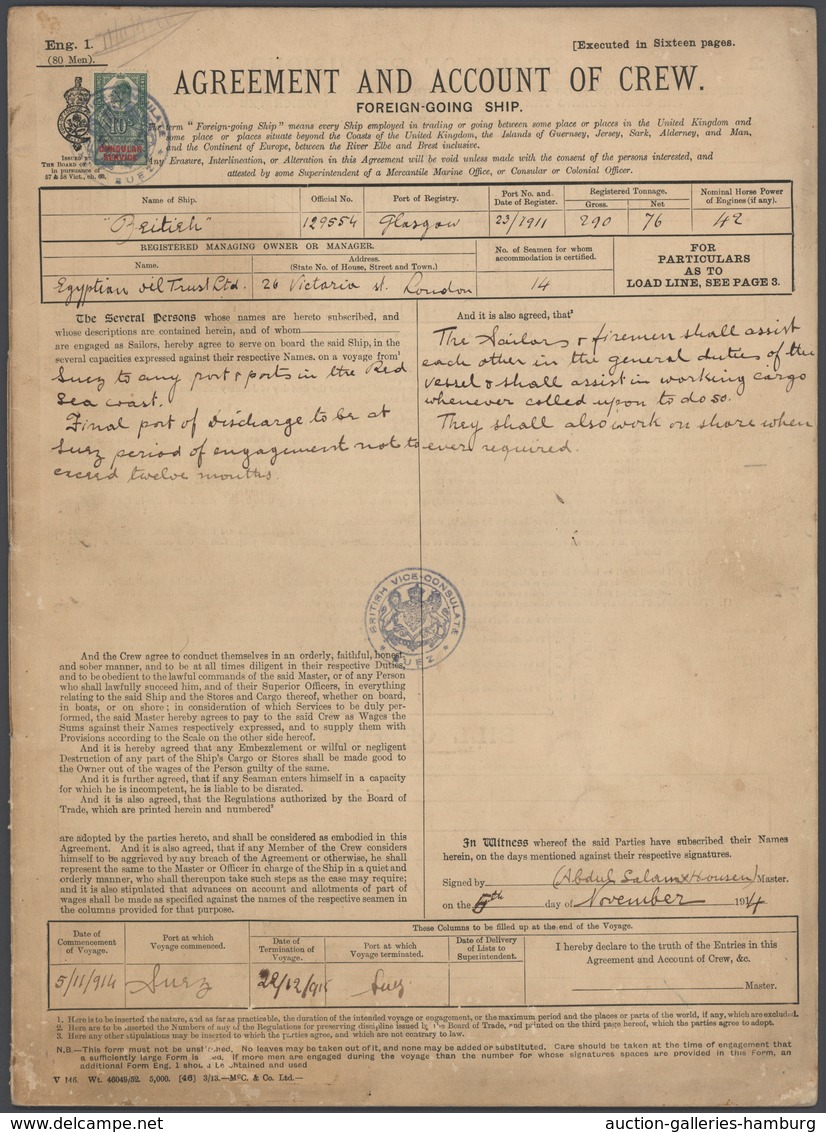 Eng. 1.
(80 Men).
[Executed in Sixteen pages.
AGREEMENT AND ACCOUNT OF CREW.
FOREIGN-GOING SHIP.
term "Foreign-going Ship" means every Ship employed in trading or going between some place or places in the United Kingdom and
some place or places situate beyond the Coasts of the United Kingdom, the Islands of Guernsey, Jersey, Sark, Alderney, and Man,
and the Continent of Europe, between the River Elbe and Brest inclusive.
Any Erasure, Interlineation, or Alteration in this Agreement will be void unless made with the consent of the persons interested, and
attested by some Superintendent of a Mercantile Marine Office, or Consular or Colonial Officer.
10
CONSULAR
SERVICE
SUEZ
ISSUED
THE BOARD OF
in pursuance of
57 & 58 Vict., ch. 60.
Name of Ship. Official No. Port of Registry. Port No. and Date of Register. Registered Tonnage. Gross. Net Nominal Horse Power of Engines (if any).
129554 Glasgow 23/1911 290 76 42
REGISTERED MANAGING OWNER OR MANAGER.
Name. Address. (State No. of House, Street and Town.)
No. of Seamen for whom accommodation is certified.
FOR
PARTICULARS
AS TO
LOAD LINE, SEE PAGE 3.
Egyptian oil Trust Ltd. 26 Victoria st. London 14
The Several Persons whose names are hereto subscribed, and
whose descriptions are contained herein, and of whom
are engaged as Sailors, hereby agree to serve on board the said Ship, in the
several capacities expressed against their respective Names, on a voyage from¹
Suez to any port & ports in the Red
Sea coast.
Final port of discharge to be at
Suez period of engagement not to
exceed twelve months.
And it is also agreed, that³
The Sailors & firemen shall assist
each other in the general duties of the
vessel & shall assist in working cargo
whenever called upon to do so.
They shall also work on shore when
ever required.
BRITISH VICE-CONSULATE
SUEZ
And the Crew agree to conduct themselves in an orderly, faithful, honest,
and sober manner, and to be at all times diligent in their respective Duties,
and to be obedient to the lawful commands of the said Master, or of any Person
who shall lawfully succeed him, and of their Superior Officers, in everything
relating to the said Ship and the Stores and Cargo thereof, whether on board,
in boats, or on shore; in consideration of which Services to be duly per-
formed, the said Master hereby agrees to pay to the said Crew as Wages the
Sums against their Names respectively expressed, and to supply them with
Provisions according to the Scale on the other side hereof.
And it is hereby agreed that any Embezzlement or wilful or negligent
Destruction of any part of the Ship's Cargo or Stores shall be made good to
the Owner out of the wages of the Person guilty of the same.
And it is further agreed, that if any Seaman enters himself in a capacity
for which he is incompetent, he is liable to be disrated.
And it is also agreed, that the Regulations authorized by the Board of
Trade, which are printed herein and numbered²
are adopted by the parties hereto, and shall be considered as embodied in this
Agreement. And it is also agreed, that if any Member of the Crew considers
himself to be aggrieved by any breach of the Agreement or otherwise, he shall
represent the same to the Master or Officer in charge of the Ship in a quiet and
orderly manner, who shall thereupon take such steps as the case may require;
and it is also stipulated that advances on account and allotments of part of
wages shall be made as specified against the names of the respective seamen in
the columns provided for that purpose.
In Witness whereof the said Parties have subscribed their Names
herein, on the days mentioned against their respective signatures.
Signed by (Abdul Salam x Housen) Master.
on the 5th day of November 1914
Date of Commencement of Voyage. Port at which Voyage commenced.
These Columns to be filled up at the end of the Voyage.
Date of Termination of Voyage. Port at which Voyage terminated. Date of Delivery of Lists to Superintendent.
I hereby declare to the truth of the Entries in this
Agreement and Account of Crew, &c.
Master.
5/11/914 Suez 22/12/915 Suez
1. Here is to be inserted the nature, and as far as practicable, the duration of the intended voyage or engagement, or the maximum period and the places or parts of the world, if any, which are excluded.
2. Here are to be inserted the Numbers of any of the Regulations for preserving discipline issued by the Board of Trade, and printed on the third page hereof, which the parties agree to adopt.
3. Here any other stipulations may be inserted to which the parties agree, and which are not contrary to law.
N.B.—This form must not be unstitched. No leaves may be taken out of it, and none may be added or substituted. Care should be taken at the time of engagement that
a sufficiently large Form is used. If more men are engaged during the voyage than the number for whose signatures spaces are provided in this Form, an
additional Form Eng. 1 should be obtained and used
V 146. Wt. 46049/52. 5,000. [46] 3/13.—McC. & Co. Ltd.—
auction-galleries-hamburg